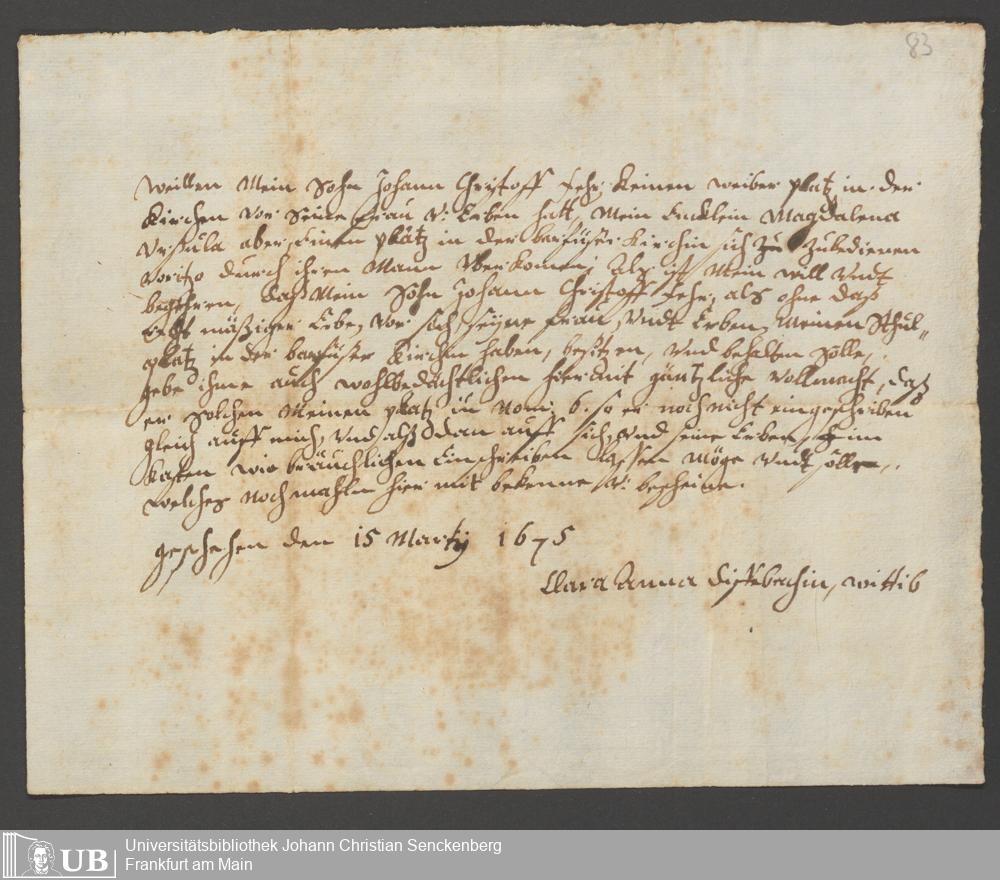 83
Weillen Mein Sohn Johann Christoff Fehr, Keinen weiber platz in der
Kirchen vor Seine Frau v: Erben hatt, Mein Encklein Magdalena
Ursula aber, Einen platz in der barfüßer Kirchin sich zu zubedienen
voritzo durch ihren Mann Uberkomen; Alß ist Mein will Undt
begehren, daß Mein Sohn Johann Christoff Fehr, als ohne daß
mäßiger Erbe, vor sich, seyne Frau, Undt Erben, Meinen Sthul„
platz in der barfüßer Kirchin haben, besitzen, Und behalten Solle,
gebe ihme auch wohlbedächtlichen hiermit gäntzliche Vollmacht, daß
er Solchen Meinen platz in Nom; 6. so er noch nicht eingeschriben
gleich auff mich, Und alß dan auff sich, Und seine Erben, Heim
Kasten wie bräuchlichen Einschreiben Lassen Möge Undt solle,
welches noch mahln hier mit bekenne v: bescheine.
geschehen den 15 Martij 1675
Clara Anna wittib
UB
Universitätsbibliothek Johann Christian Senckenberg
Frankfurt am Main